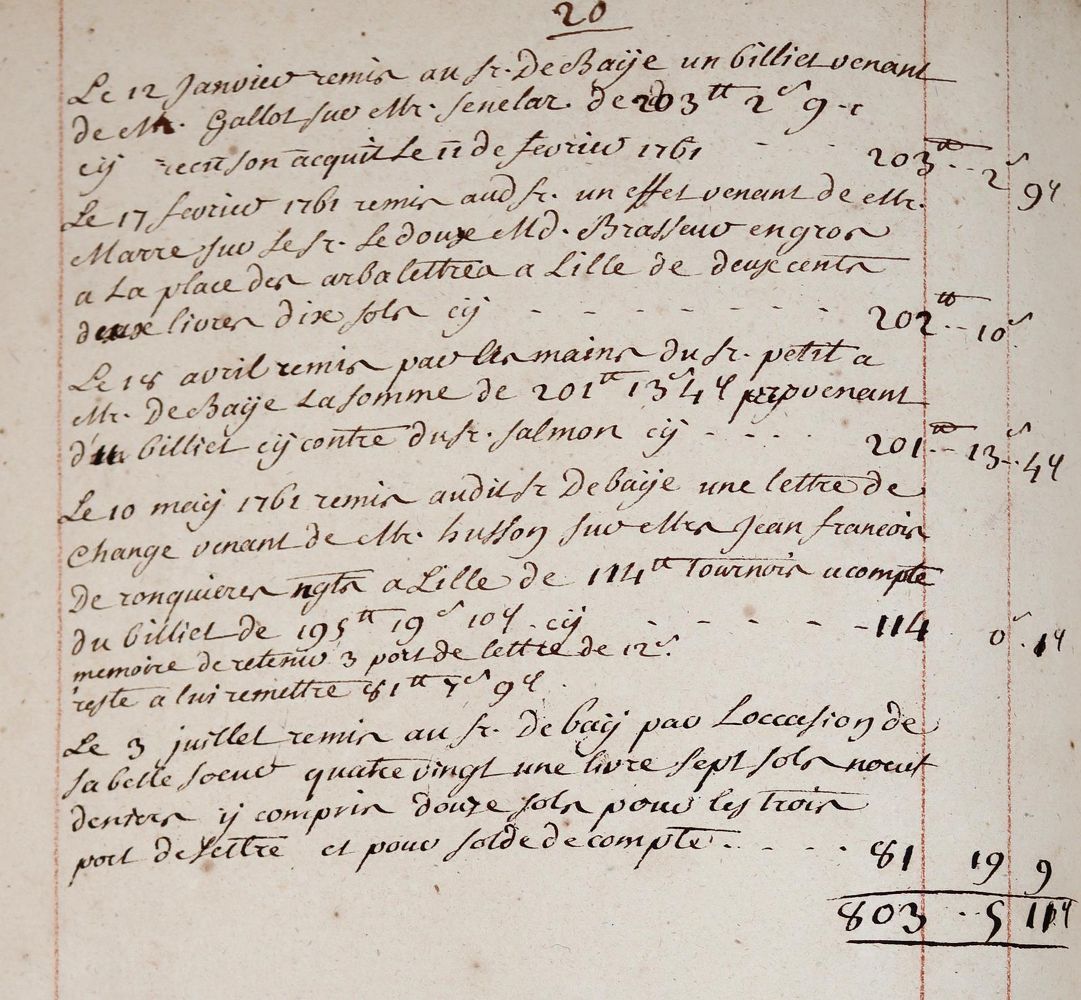 20
Le 12 Janvier remis au Sr. De Baÿe un billiet venant
de Mr. Gallot sur Mr. Senelar. de 203tt 2s 9
cÿ reçu son acquit Le 11 de fevrier 1761 - - - 203tt - - 2s 9d
Le 17 fevrier 1761 remis aud Sr. un effet venant de Mr.
Marre sur Le Sr. Le doux Md. Brasseur en gros
a La place des arbalettres a Lille de deux cents
deux livres dix sols cÿ - - - - - - - 202tt - - 10s
Le 18 avril remis par Les mains du Sr. petit a
Mr. De Baÿe La somme de 201tt 13s 4d provenant
d'un billiet cÿ contre du Sr. Salmon cÿ - - - - 201tt - - 13s - - 4d
Le 10 maÿ 1761 remis audit Sr De baÿe une lettre de
change venant de Mr. husson sur Mrs Jean francois
De ronquieres ngts a Lille de 114tt Tournois a compte
du billiet de 195tt 19s 10d . cÿ - - - - - - 114 0s . 1d
memoire de retenir 3 port de lettre de 12s.
reste a lui remettre 81tt 7s 9d .
Le 3 juillet remis au Sr. De baÿ par L'occasion de
sa belle soeur quatre vingt une livre sept sols neuf
deniers ÿ compris douze sols pour les trois
port de Lettre et pour solde de compte . - - - . 81 19 9
803 - - 5 11d